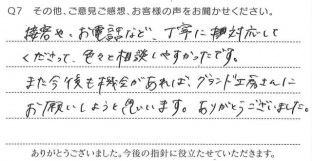 Q7 その他、ご意見ご感想、お客様の声をお聞かせください。
接客や、お電話など、丁寧に対応して
くださって、色々と相談しやすかったです。
また今後も機会があれば、グランド工房さんに
お願いしようと思います。ありがとうございました。
ありがとうございました。今後の指針に役立たせていただきます。